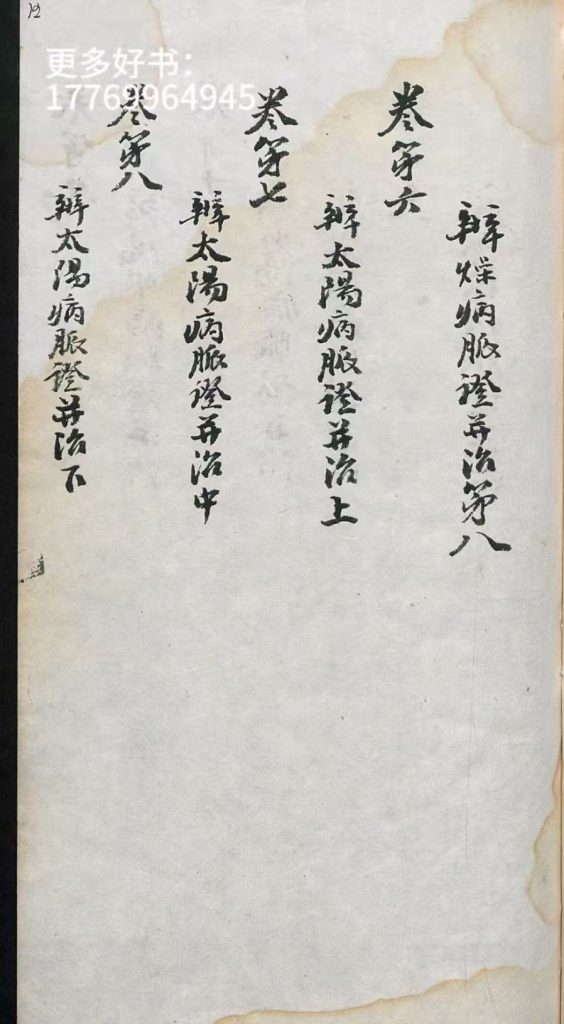 12
更多好书：
17769964945
辨燥病脈證并治第八
卷第六
辨太陽病脈證并治上
卷第七
辨太陽病脈證并治中
卷第八
辨太陽病脈證并治下